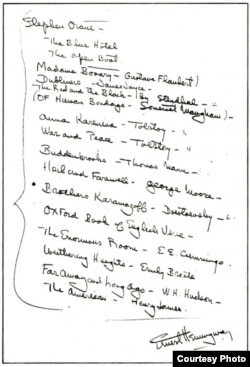 Stephen Crane -
The Blue Hotel
The Open Boat
Madame Bovary - Gustave Flaubert)
Dubliners - James Joyce
The Red and the Black - By Stendhal -
(Of Human Bondage - Somerset Maugham) -
Anna Karenina - Tolstoy - "
War and Peace - Tolstoy - "
Buddenbrooks - Thomas Mann -
Hail and Farewell - George Moore -
Brothers Karamazoff - Dostoevsky -
Oxford Book of English Verse -
The Enormous Room - E.E. Cummings.
Wuthering Heights - Emily Bronte
Far Away and Long Ago - W.H. Hudson -
The American - Henry James.
Ernest Hemingway
Courtesy Photo